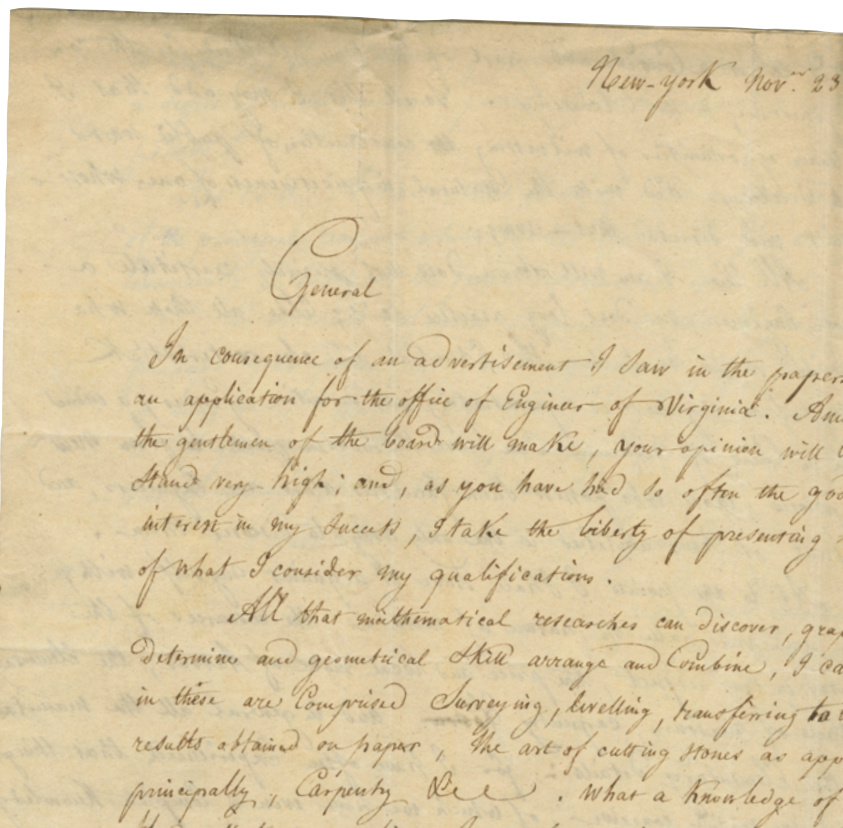 New-york Nov.er 23
General
In consequence of an advertisement I saw in the papers
an application for the office of Engineer of Virginia. Am
the gentlemen of the board will make, your opinion will
stand very high; and, as you have had so often the goo
interest in my success, I take the liberty of presenting
of what I consider my qualifications.
All that mathematical researches can discover, grap
determine and geometrical skill arrange and combine, I ca
in these are comprised Surveying, levelling, transferring to
results obtained on paper, the art of cutting stones as app
principally, Carpentry &c. What a knowledge of